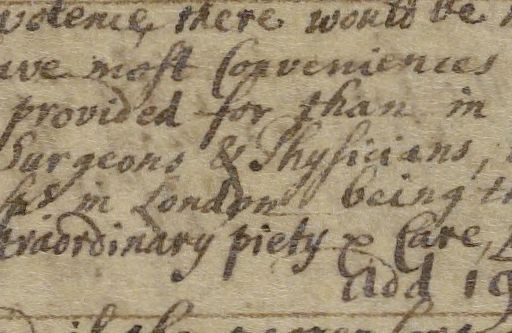 volence, there would be
ave most Conveniences
provided for than in
Surgeons & Physicians,
in London being
traordinary piety & Care,
add 19
if the